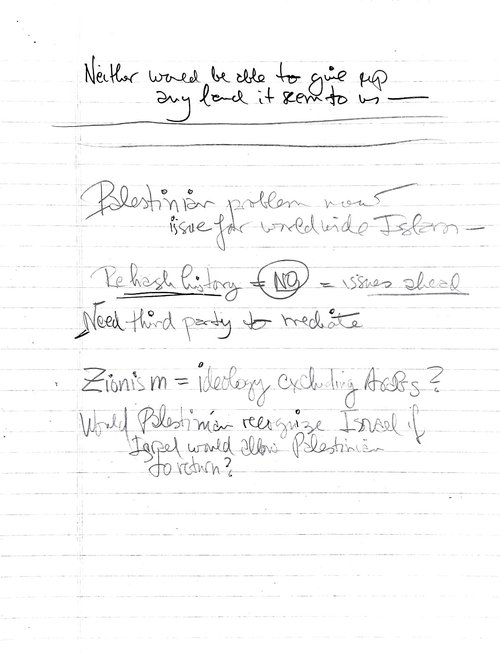 Neither would be able to give up
any land it seem to us —
Palestinian problem now
issue for worldwide Islam —
Rehash history = NO = issues ahead
Need third party to mediate
Zionism = ideology excluding Arabs?
Would Palestinian recognize Israel if
Israel would allow Palestinian
to return?